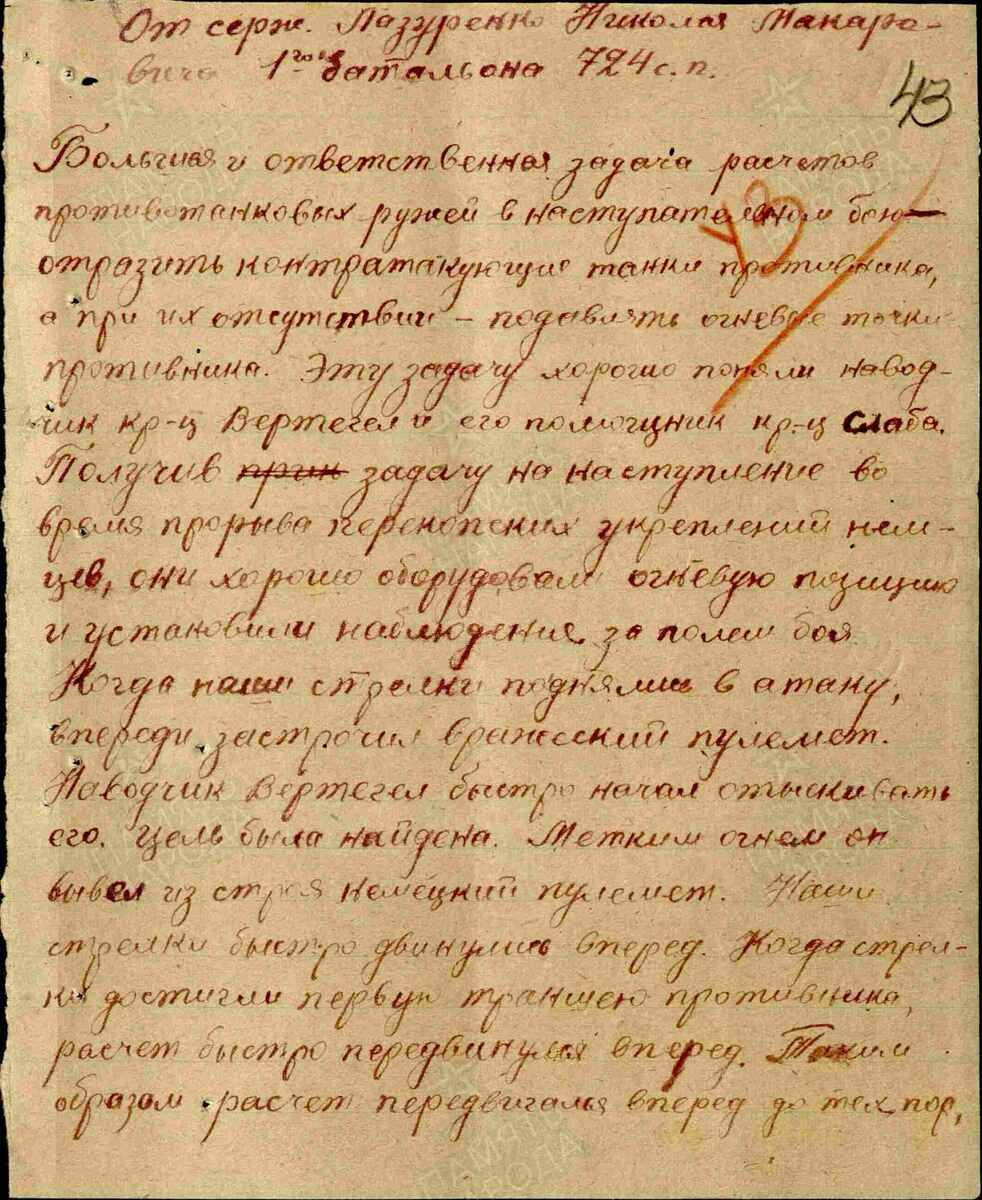 От серж. Лазуренко Николая Макаро-
вича 1го батальона 724 с.п.
43
Большая и ответственная задача расчетов
противотанковых ружей в наступательном бою —
отразить контратакующие танки противника,
а при их отсутствии – подавлять огневые точки
противника. Эту задачу хорошо поняли навод-
чик кр-ц Вертегел и его помощник кр-ц Слаба.
Получив прик задачу на наступление во
время прорыва перекопских укреплений нем-
цев, они хорошо оборудовали огневую позицию
и установили наблюдение за полем боя
Когда наши стрелки поднялись в атаку,
впереди застрочил вражеский пулемет.
Наводчик Вертегел быстро начал отыскивать
его. Цель была найдена. Метким огнем он
вывел из строя немецкий пулемет. Наши
стрелки быстро двинулись вперед. Когда стрел-
ки достигли первую траншею противника,
расчет быстро передвинулся вперед. Таким
образом расчет передвигался вперед до тех пор,
ПАМЯТЬ
НАРОДА